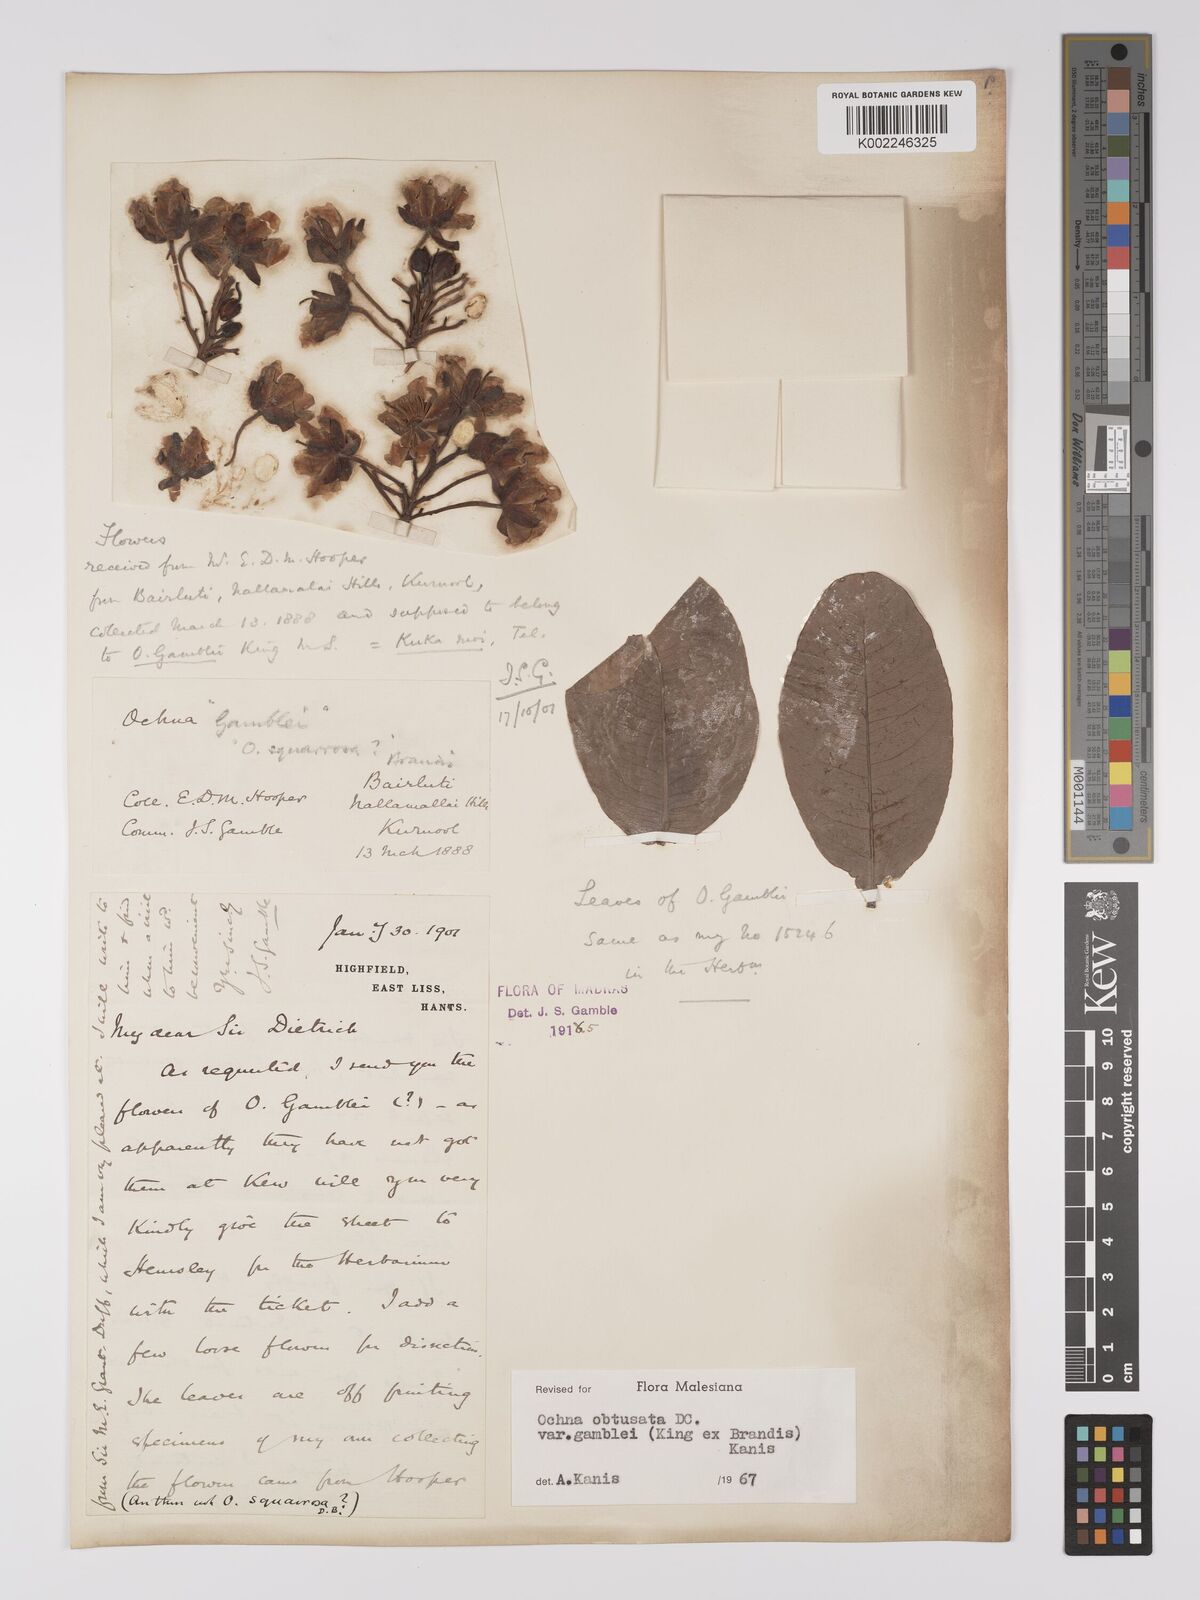 ROYAL BOTANIC GARDENS KEW
K002246325
Flowers
received from Mr. E. D. M. Hooper
from Bairluti, Nallamalai Hills, Kurnool,
collected March 13. 1888 and supposed to belong
to O. Gamblei King M.S. = Kuka moi, Tel.
J.S.G.
17/10/01
Ochna "Gamblei"
"O. squarrosa?"
Brandis
Bairluti
Coll. E.D.M. Hooper
Nallamallai Hills
Comm. J.S. Gamble
Kurnool
13 Mch 1888
Leaves of O. Gamblei
same as my No 15246
in the Herbm
FLORA OF MADRAS
Det. J. S. Gamble
1915
Jany 30. 1901
HIGHFIELD,
EAST LISS,
HANTS.
My dear Sir Dietrich
As requested, I send you the
flowers of O. Gamblei (?) – as
apparently they have not got
them at Kew will you very
kindly give the sheet to
Hemsley for the Herbarium
with the ticket. I add a
few loose flowers for dissection.
The leaves are off fruiting
specimens of my own collecting
the flowers came from Hooper
(Are they not O. squarrosa?)
D.B.
from Sir M.E. Grant Duff, which I am very pleased at. I will write to
him & find
when a visit
to him wd.
be convenient
Yrs. sincly
J.S. Gamble
Revised for Flora Malesiana
Ochna obtusata DC.
var.gamblei (King ex Brandis)
Kanis
det. A.Kanis /19 67
inches
centimetres
Density
Don Williams
M001144
Royal Botanic Gardens
Kew
0 1 2 3 4 5 6 7 8 9 10
cm
copyright reserved